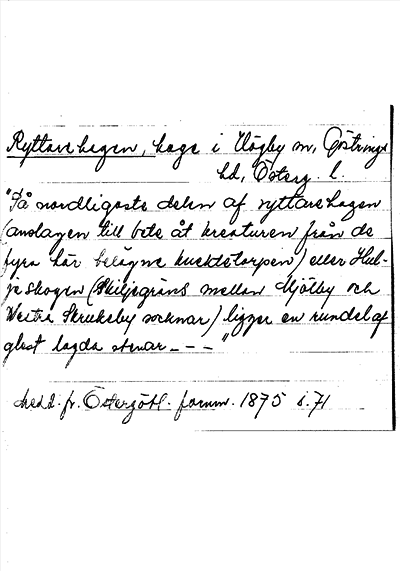 Ryttarehagen, hage i Högby sn, Göstrings
hd, Österg. l.
"På nordligaste delen af ryttarehagen
(anslagen till bete åt kreaturen från de
fyra här belägne knektetorpen) eller Hul-
jeskogen (Skiljegräns mellan Mjölby och
Westra Skrukeby socknar) ligger en rundel af
glest lagda stenar - - - "
Medd. fr. Östergötl. fornm. 1875 s. 71